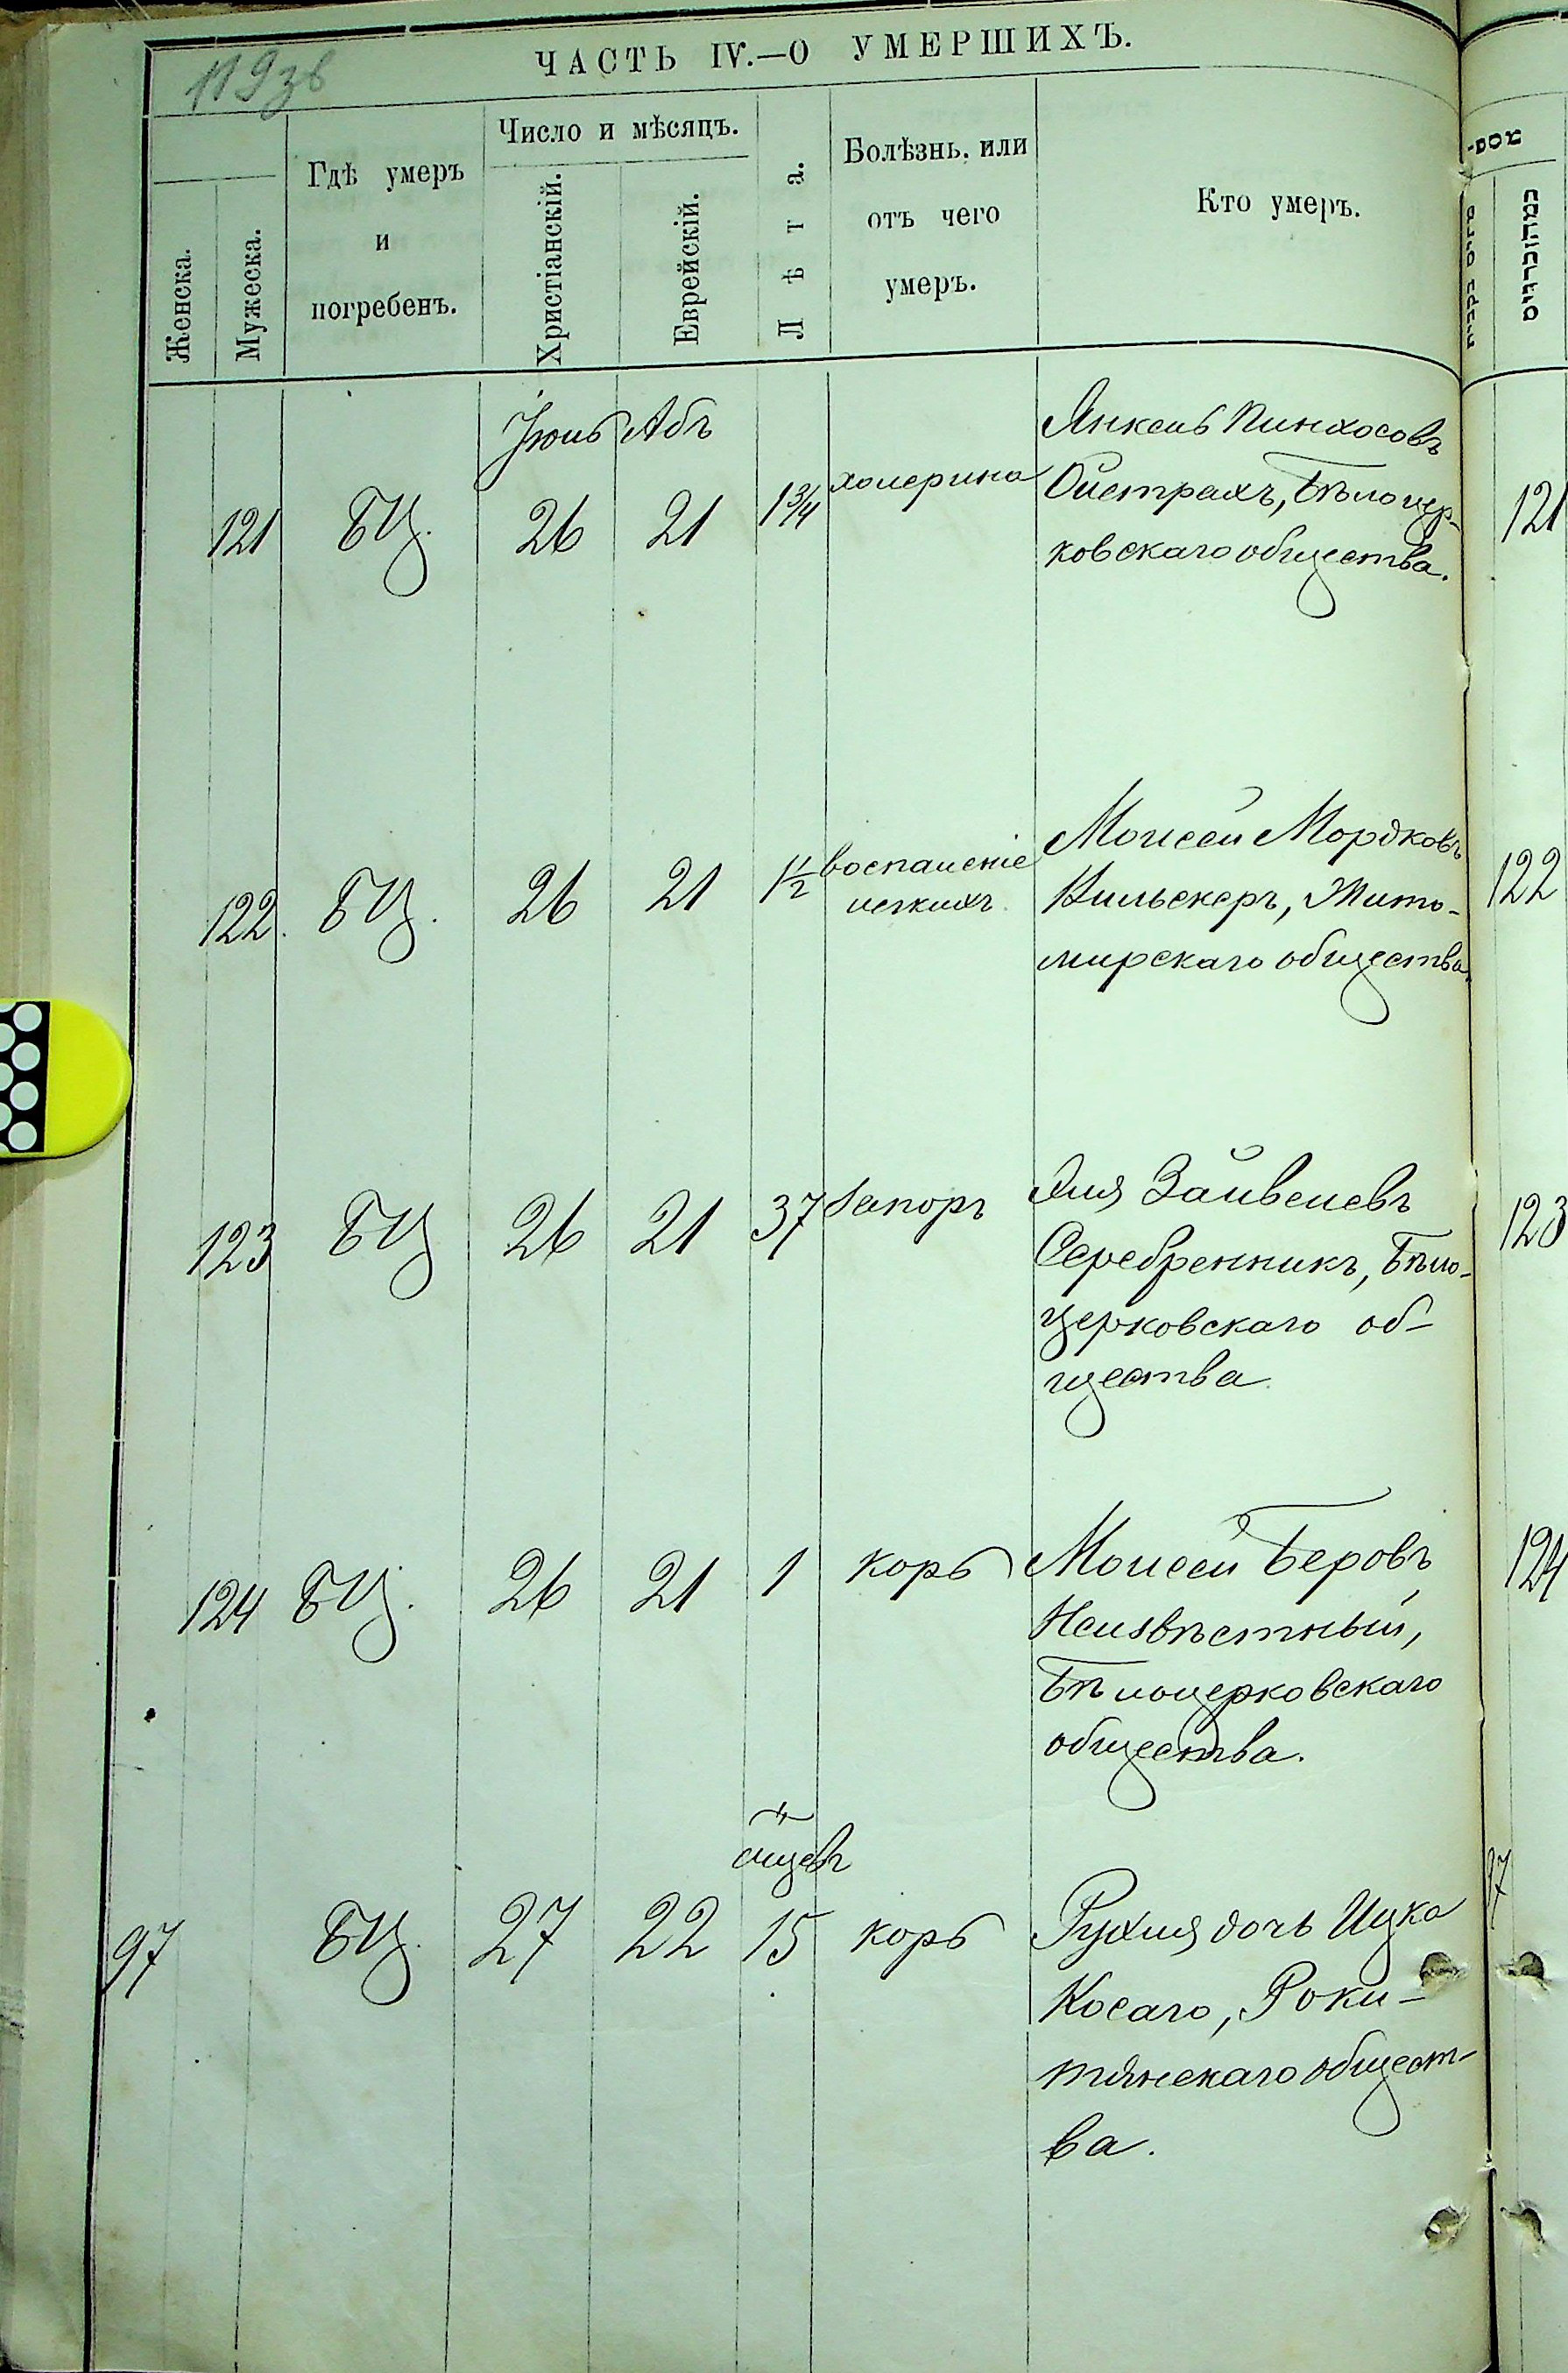 119зв
ЧАСТЬ IV.—О УМЕРШИХЪ.
Женска.
Мужеска.
Гдѣ умеръ
и
погребенъ.
Число и мѣсяцъ.
Христіанскій.
Еврейскій.
Лѣта.
Болѣзнь. или
отъ чего
умеръ.
Кто умеръ.
כמהוכרגיס
Іюль Абъ
121 БЦ. 26 21 1 3/4 холерина
Янкель Пинхосовъ
Ойстрахъ, Бѣлоцер-
ковскаго общества.
121
122. БЦ. 26 21 1 1/2 воспаленіе
легкихъ.
Моисей Мордковъ
Кильскеръ, Жито-
мирскаго общества.
122
123 БЦ 26 21 37 Запоръ
Эля Зайвелевъ
Серебренникъ, Бѣло-
церковскаго об-
щества.
123
124 БЦ. 26 21 1 корь
Моисей Беровъ
Неизвѣстный,
Бѣлоцерковскаго
общества.
124
97 БЦ. 27 22 15 мцевъ корь
Рухля дочь Ицка
Косаго, Роки-
тянскаго общест-
ва.
97